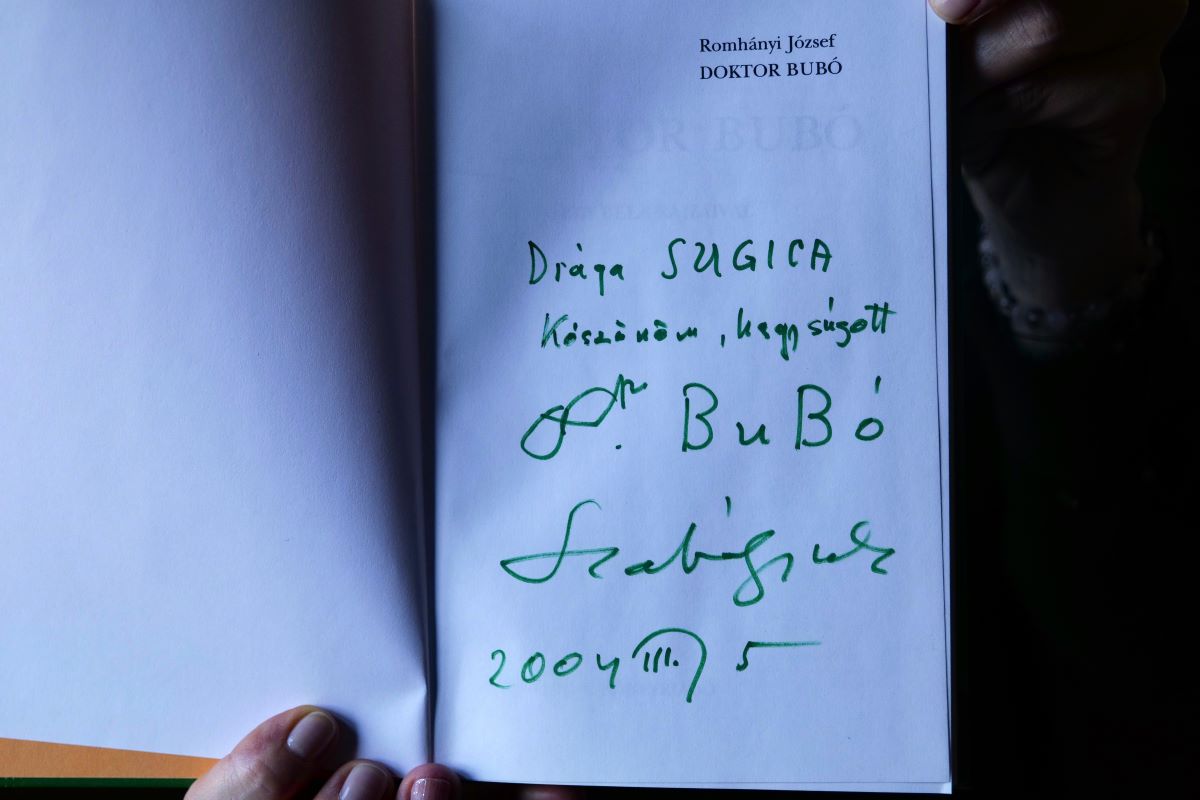 Romhányi József
DOKTOR BUBÓ
Drága SUGICA
Köszönöm, hogy súgott
Dr. BuBó
Szabó Gyula
2004 III. 5